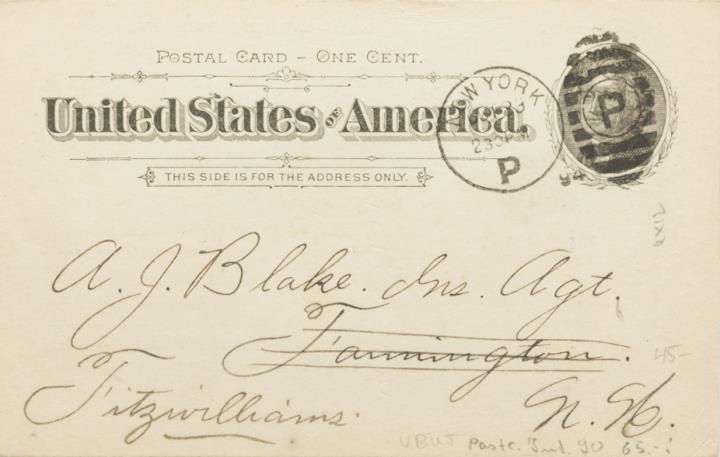 POSTAL CARD - ONE CENT.
United States OF America.
THIS SIDE IS FOR THE ADDRESS ONLY.
NEW YORK
230PM
P
P
94
A. J. Blake. Ins. Agt.
Farmington.
Fitzwilliams.
N. H.
45-
65.-